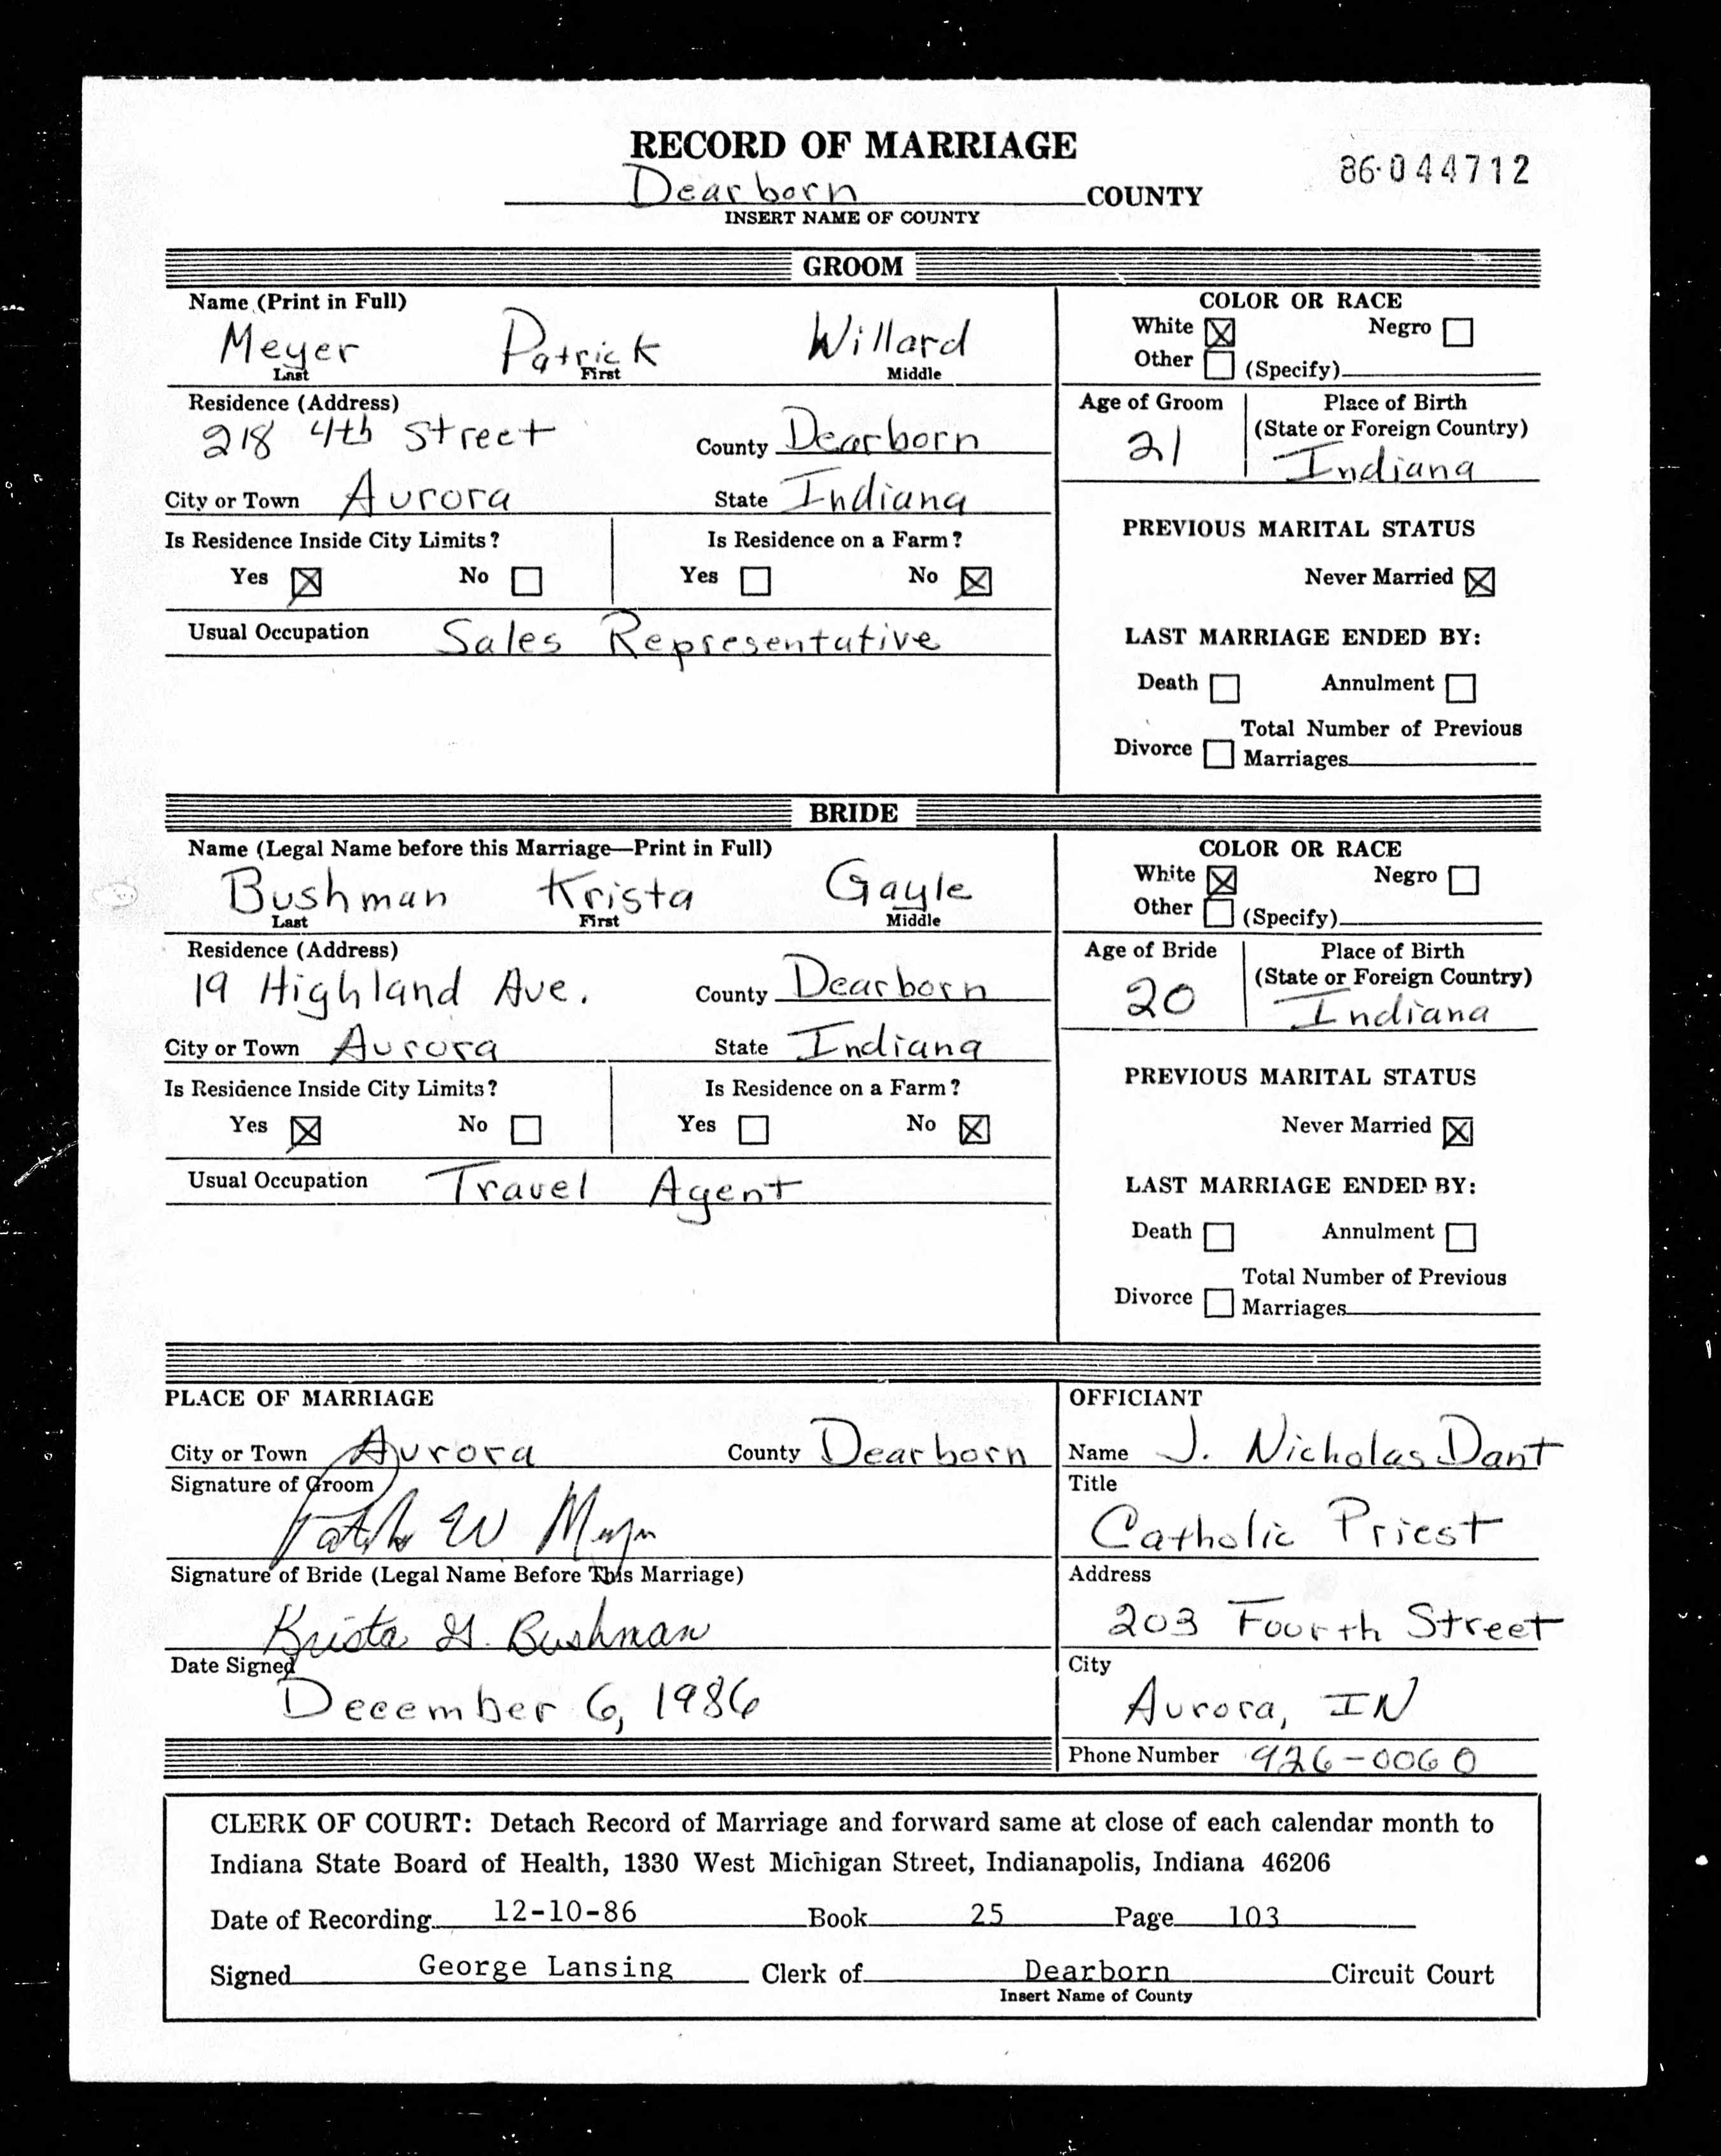 RECORD OF MARRIAGE
86-044712
Dearborn COUNTY
INSERT NAME OF COUNTY
GROOM
Name (Print in Full)
Meyer Patrick Willard
Last First Middle
COLOR OR RACE
White ☒ Negro ☐
Other ☐ (Specify)
Residence (Address)
218 4th Street County Dearborn
City or Town Aurora State Indiana
Age of Groom
21
Place of Birth
(State or Foreign Country)
Indiana
Is Residence Inside City Limits? Is Residence on a Farm?
Yes ☒ No ☐ Yes ☐ No ☒
Usual Occupation Sales Representative
PREVIOUS MARITAL STATUS
Never Married ☒
LAST MARRIAGE ENDED BY:
Death ☐ Annulment ☐
Divorce ☐ Total Number of Previous
Marriages
BRIDE
Name (Legal Name before this Marriage—Print in Full)
Bushman Krista Gayle
Last First Middle
COLOR OR RACE
White ☒ Negro ☐
Other ☐ (Specify)
Residence (Address)
19 Highland Ave. County Dearborn
City or Town Aurora State Indiana
Age of Bride
20
Place of Birth
(State or Foreign Country)
Indiana
Is Residence Inside City Limits? Is Residence on a Farm?
Yes ☒ No ☐ Yes ☐ No ☒
Usual Occupation Travel Agent
PREVIOUS MARITAL STATUS
Never Married ☒
LAST MARRIAGE ENDED BY:
Death ☐ Annulment ☐
Divorce ☐ Total Number of Previous
Marriages
PLACE OF MARRIAGE
City or Town Aurora County Dearborn
Signature of Groom
Patrick W Meyer
Signature of Bride (Legal Name Before This Marriage)
Krista G. Bushman
Date Signed
December 6, 1986
OFFICIANT
Name J. Nicholas Dant
Title
Catholic Priest
Address
203 Fourth Street
City
Aurora, IN
Phone Number 926-0060
CLERK OF COURT: Detach Record of Marriage and forward same at close of each calendar month to
Indiana State Board of Health, 1330 West Michigan Street, Indianapolis, Indiana 46206
Date of Recording 12-10-86 Book 25 Page 103
Signed George Lansing Clerk of Dearborn Circuit Court
Insert Name of County